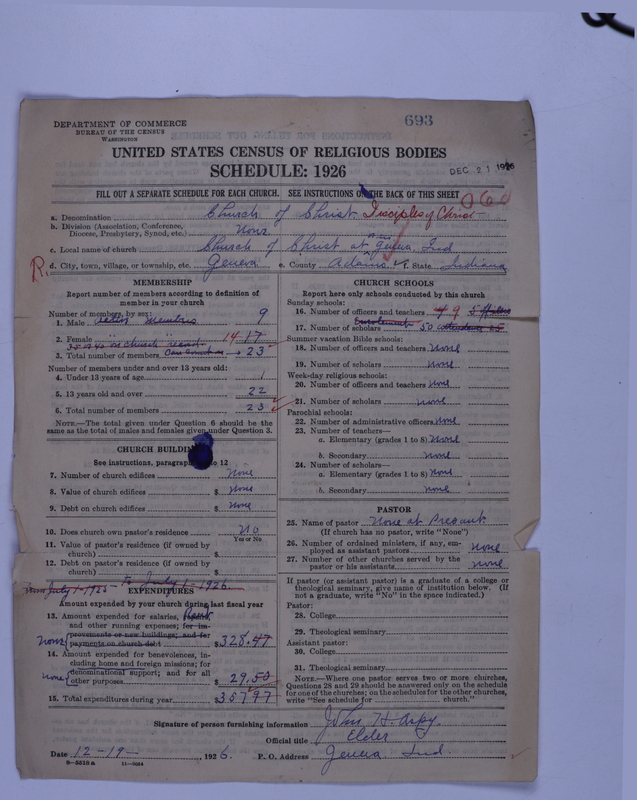 693
DEPARTMENT OF COMMERCE
BUREAU OF THE CENSUS
WASHINGTON
UNITED STATES CENSUS OF RELIGIOUS BODIES
SCHEDULE: 1926
DEC 21 1926
FILL OUT A SEPARATE SCHEDULE FOR EACH CHURCH. SEE INSTRUCTIONS ON THE BACK OF THIS SHEET
a. Denomination Church of Christ Disciples of Christ
b. Division (Association, Conference, Diocese, Presbytery, Synod, etc.) None
c. Local name of church Church of Christ at Geneva Ind
R. d. City, town, village, or township, etc. Geneva e. County Adams f. State Indiana
MEMBERSHIP
Report number of members according to definition of
member in your church
Number of members, by sex:
1. Male active members 9
2. Female " " 14 17
on church record
3. Total number of members 23
Number of members under and over 13 years old:
4. Under 13 years of age 1
5. 13 years old and over 22
6. Total number of members 23
NOTE.—The total given under Question 6 should be
same as the total of males and females given under Question 3.
CHURCH BUILDING
See instructions, paragraph to 12
7. Number of church edifices None
8. Value of church edifices $ None
9. Debt on church edifices $ None
10. Does church own pastor's residence? No
Yes or No
11. Value of pastor's residence (if owned by
church) $
12. Debt on pastor's residence (if owned by
church) $
From July 1-1925 To July 1-1926
EXPENDITURES
Amount expended by your church during last fiscal year
13. Amount expended for salaries, Rent
and other running expenses; for im-
provements or new buildings; and for
None payments on church debt $ 328.47
14. Amount expended for benevolences, in-
cluding home and foreign missions; for
denominational support; and for all
none other purposes $ 29.50
15. Total expenditures during year $ 357 97
CHURCH SCHOOLS
Report here only schools conducted by this church
Sunday schools:
16. Number of officers and teachers 9
Enrolement
17. Number of scholars 50
Summer vacation Bible schools:
18. Number of officers and teachers None
19. Number of scholars None
Week-day religious schools:
20. Number of officers and teachers None
21. Number of scholars none
Parochial schools:
22. Number of administrative officers none
23. Number of teachers—
a. Elementary (grades 1 to 8) None
b. Secondary None
24. Number of scholars—
a. Elementary (grades 1 to 8) None
b. Secondary none
PASTOR
25. Name of pastor None at Presant
(If church has no pastor, write "None")
26. Number of ordained ministers, if any, em-
ployed as assistant pastors none
27. Number of other churches served by the
pastor or his assistants none
If pastor (or assistant pastor) is a graduate of a college or
theological seminary, give name of institution below. (If
not a graduate, write "No" in the space indicated.)
Pastor:
28. College
29. Theological seminary
Assistant pastor:
30. College
31. Theological seminary
NOTE.—Where one pastor serves two or more churches,
Questions 28 and 29 should be answered only on the schedule
for one of the churches; on the schedules for the other churches,
write "See schedule for church."
Signature of person furnishing information
Official title Elder
Date 12-19- , 1926. P. O. Address Geneva Ind.